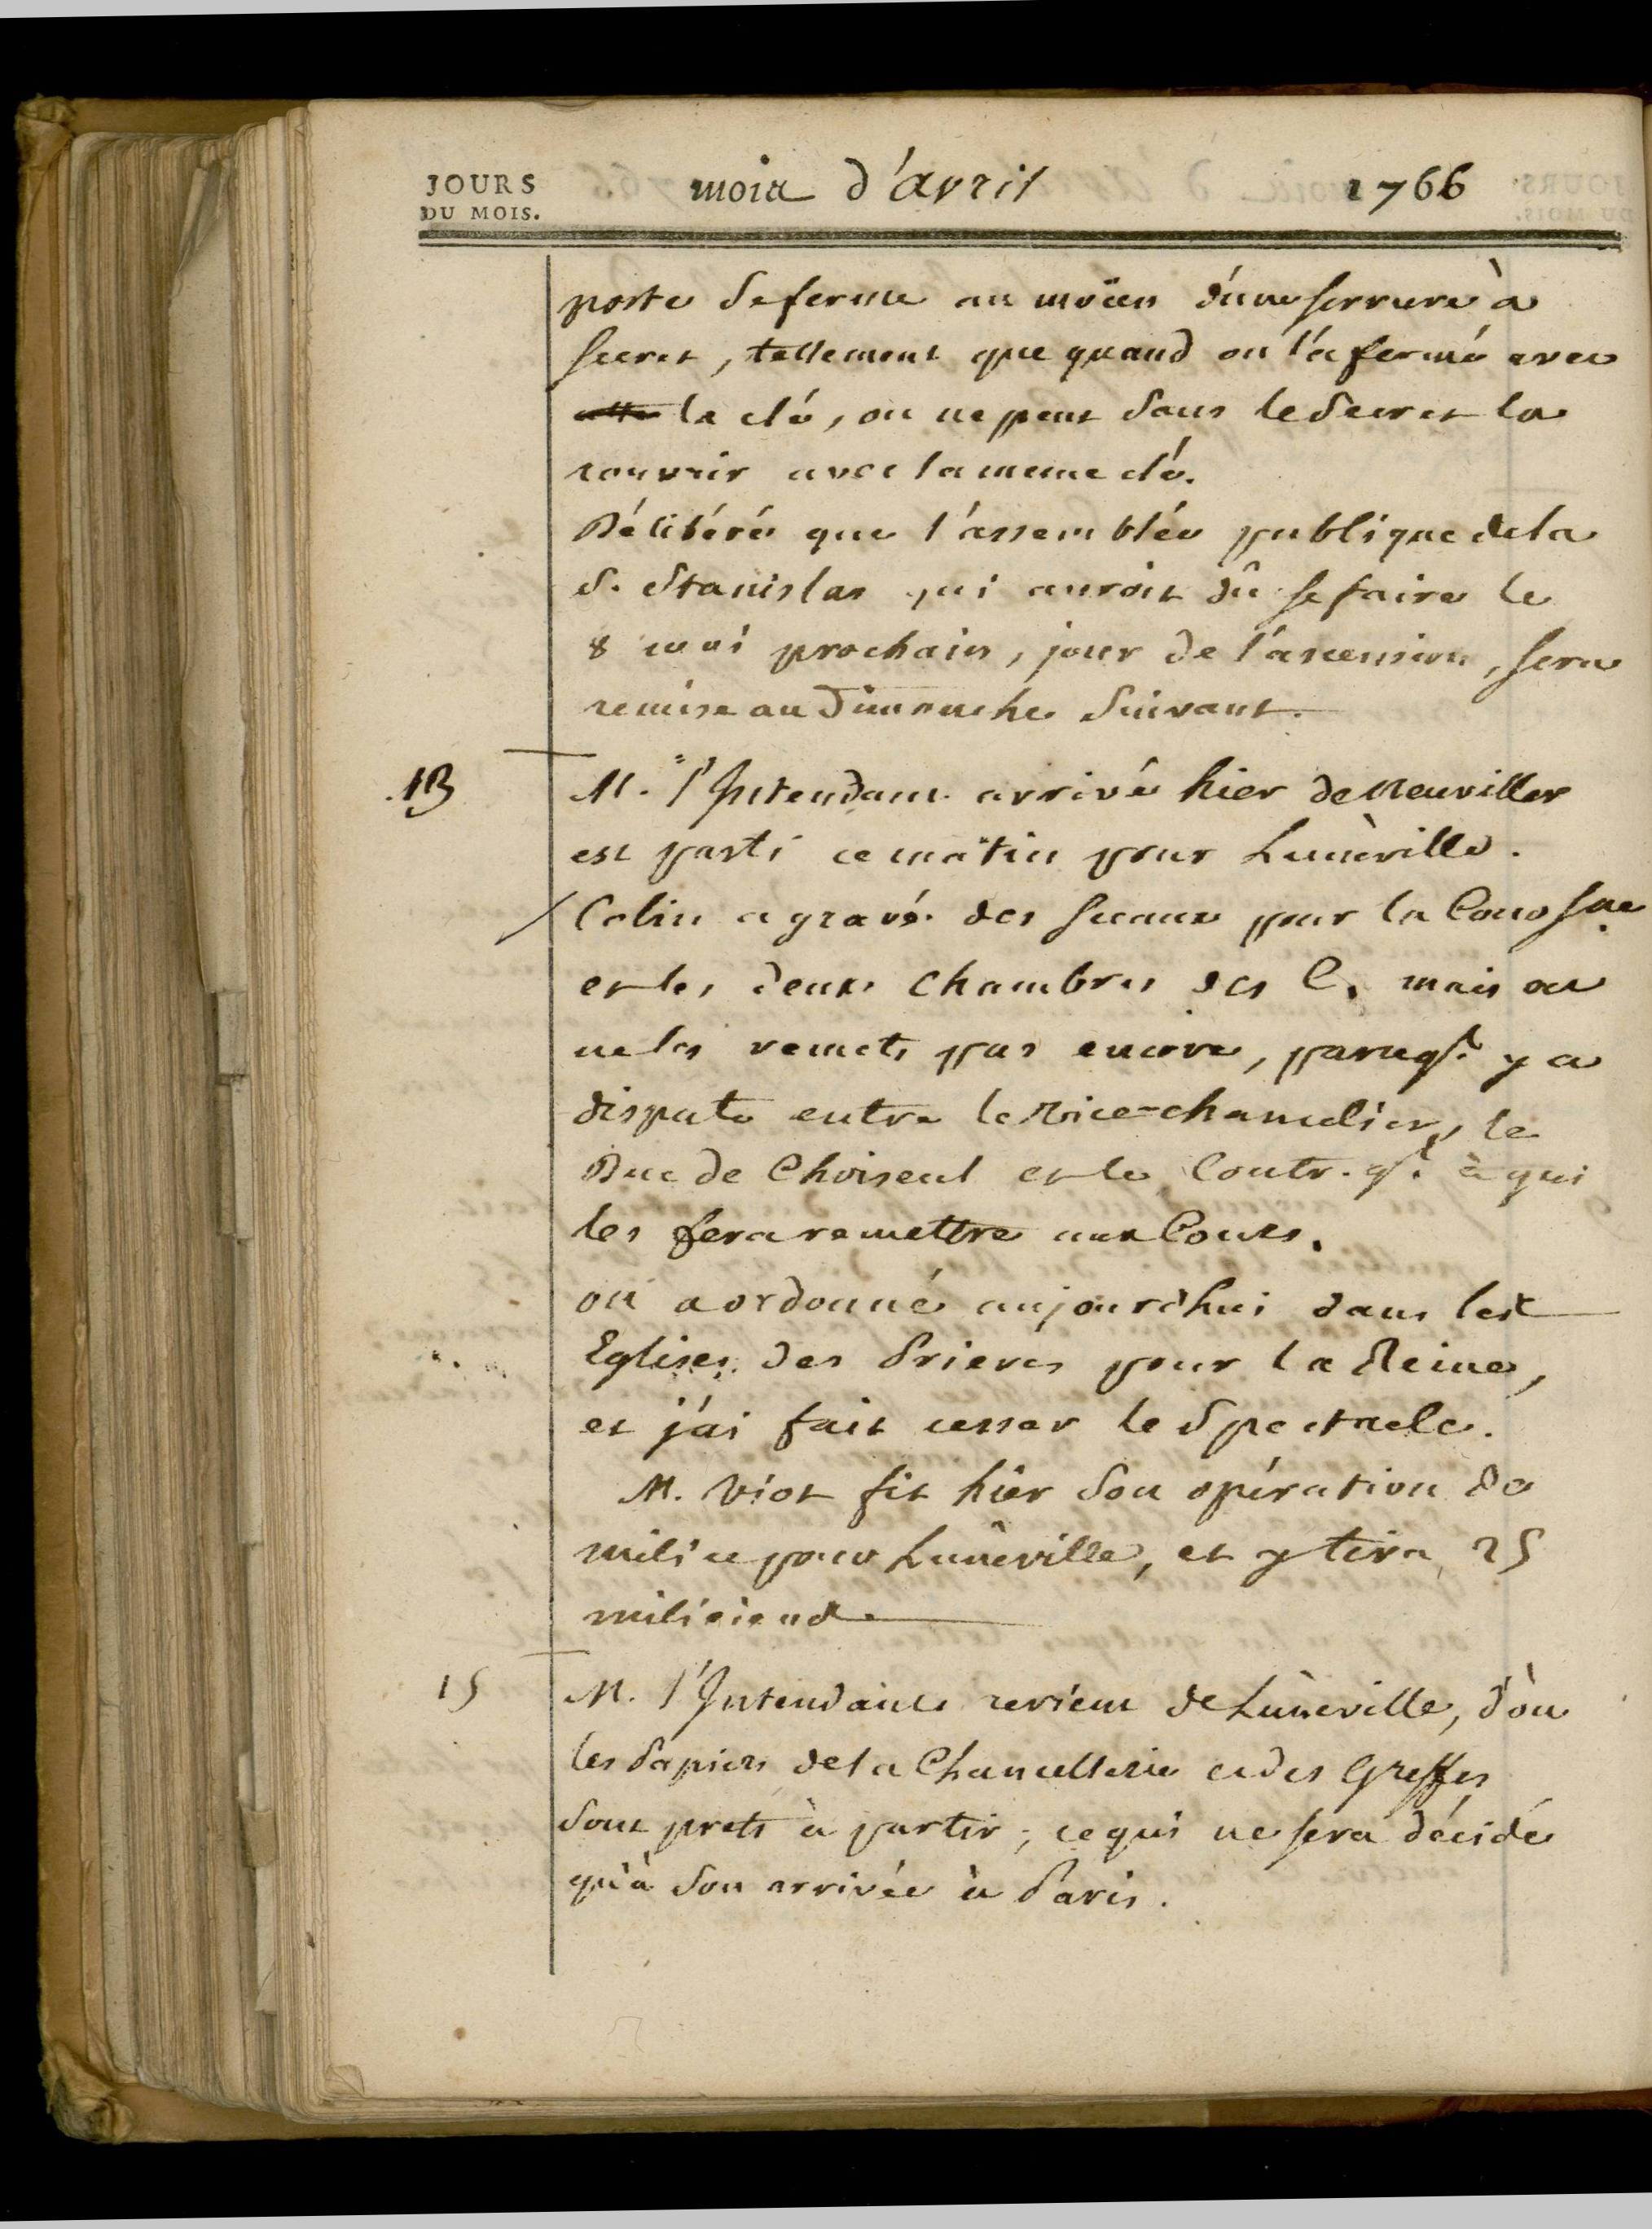 JOURS
DU MOIS.
mois d'avril 1766
porte se ferme au moïen d'une serrure à
secret, tellement que quand on l'a fermé avec
la clé, on ne peut sans le secret la
rouvrir avec la meme clé.
Délibéré que l'assemblée publique de la
S. Stanislas qui auroit dû se faire le
8 mai prochain, jour de l'ascension, sera
remise au Dimanche suivant.
13
M. l'Intendant arrivé hier de Neuviller
est parti ce matin pour Lunéville.
Colin a gravé des sceaux pour la Cour Sne
et les deux chambres des C. mais on
ne les remets pas encore, parceql. y a
dispute entre le vice-chancelier, le
Duc de Choiseul et le Contr. gl. à qui
les fera remettre aux Cours.
on a ordonné aujourd'hui dans les
Eglises des Prieres pour la Reine,
et j'ai fait cesser le Spectacle.
M. Viot fit hier son opération de
milice pour Lunéville, et y tira 25
miliciens
15
M. l'Intendant revient de Lunéville, d'où
les Papiers de la Chancellerie et des Greffes
sont prets à partir; ce qui ne sera décidé
qu'à son arrivée à Paris.